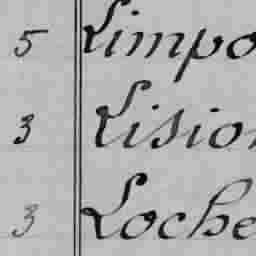 5 Limpo
3 Lision
3 Loche